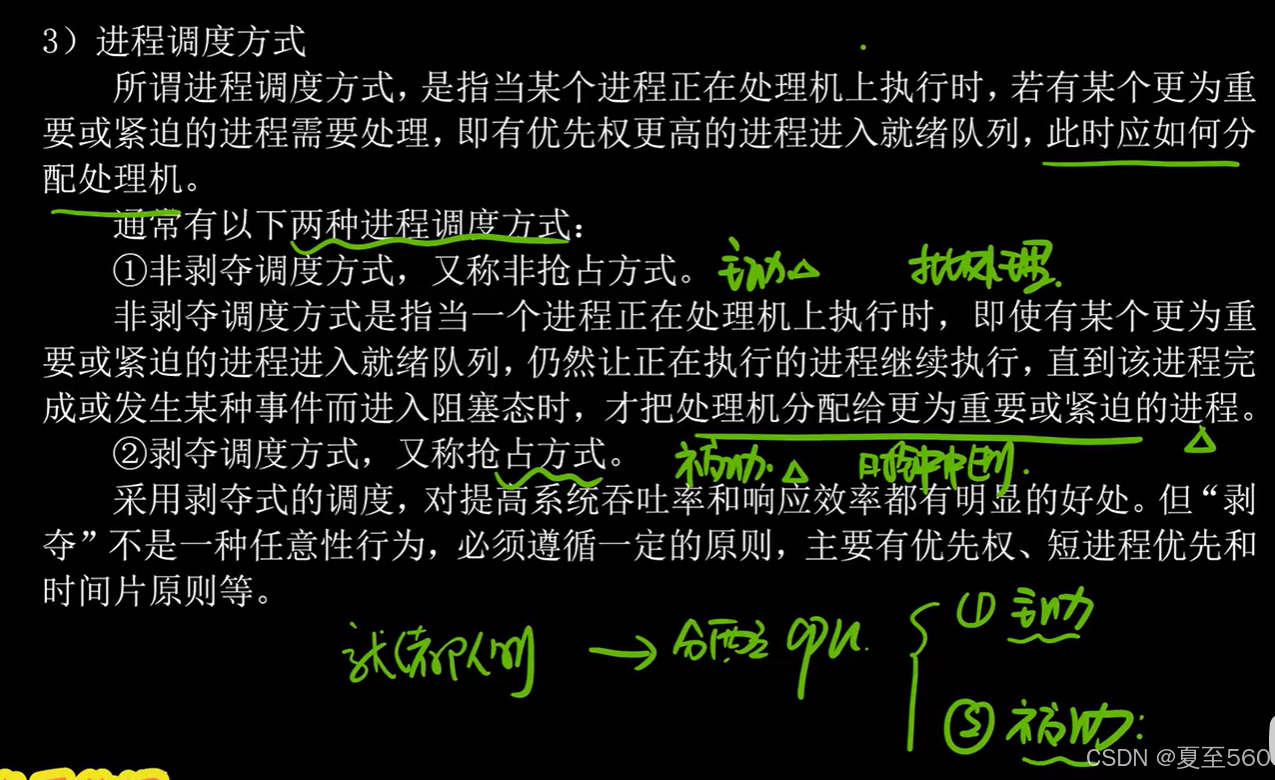 3）进程调度方式
所谓进程调度方式，是指当某个进程正在处理机上执行时，若有某个更为重
要或紧迫的进程需要处理，即有优先权更高的进程进入就绪队列，此时应如何分
配处理机。
通常有以下两种进程调度方式：
①非剥夺调度方式，又称非抢占方式。 主动 批处理.
非剥夺调度方式是指当一个进程正在处理机上执行时，即使有某个更为重
要或紧迫的进程进入就绪队列，仍然让正在执行的进程继续执行，直到该进程完
成或发生某种事件而进入阻塞态时，才把处理机分配给更为重要或紧迫的进程。
②剥夺调度方式，又称抢占方式。 被动. 时钟中断.
采用剥夺式的调度，对提高系统吞吐率和响应效率都有明显的好处。但“剥
夺”不是一种任意性行为，必须遵循一定的原则，主要有优先权、短进程优先和
时间片原则等。
① 主动
就绪队列 → 分配 cpu.
② 被动:
CSDN @夏至560